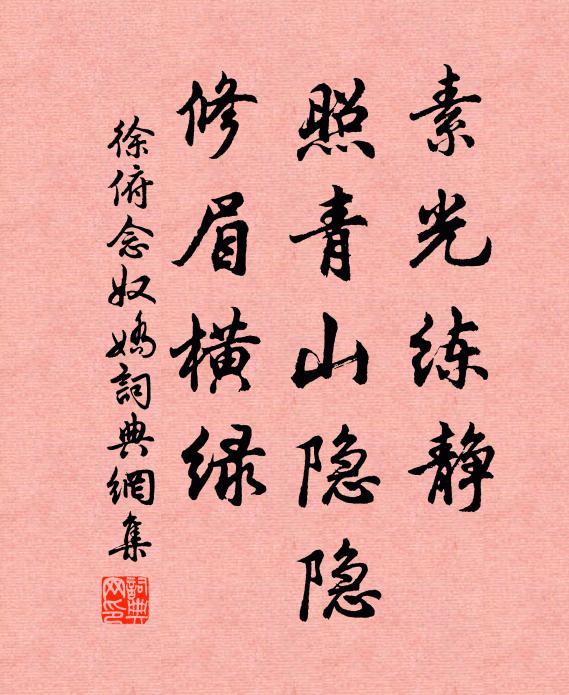 素光练静
照青山隐隐
修眉横绿
徐俯念奴娇詞典網集
詞典网印